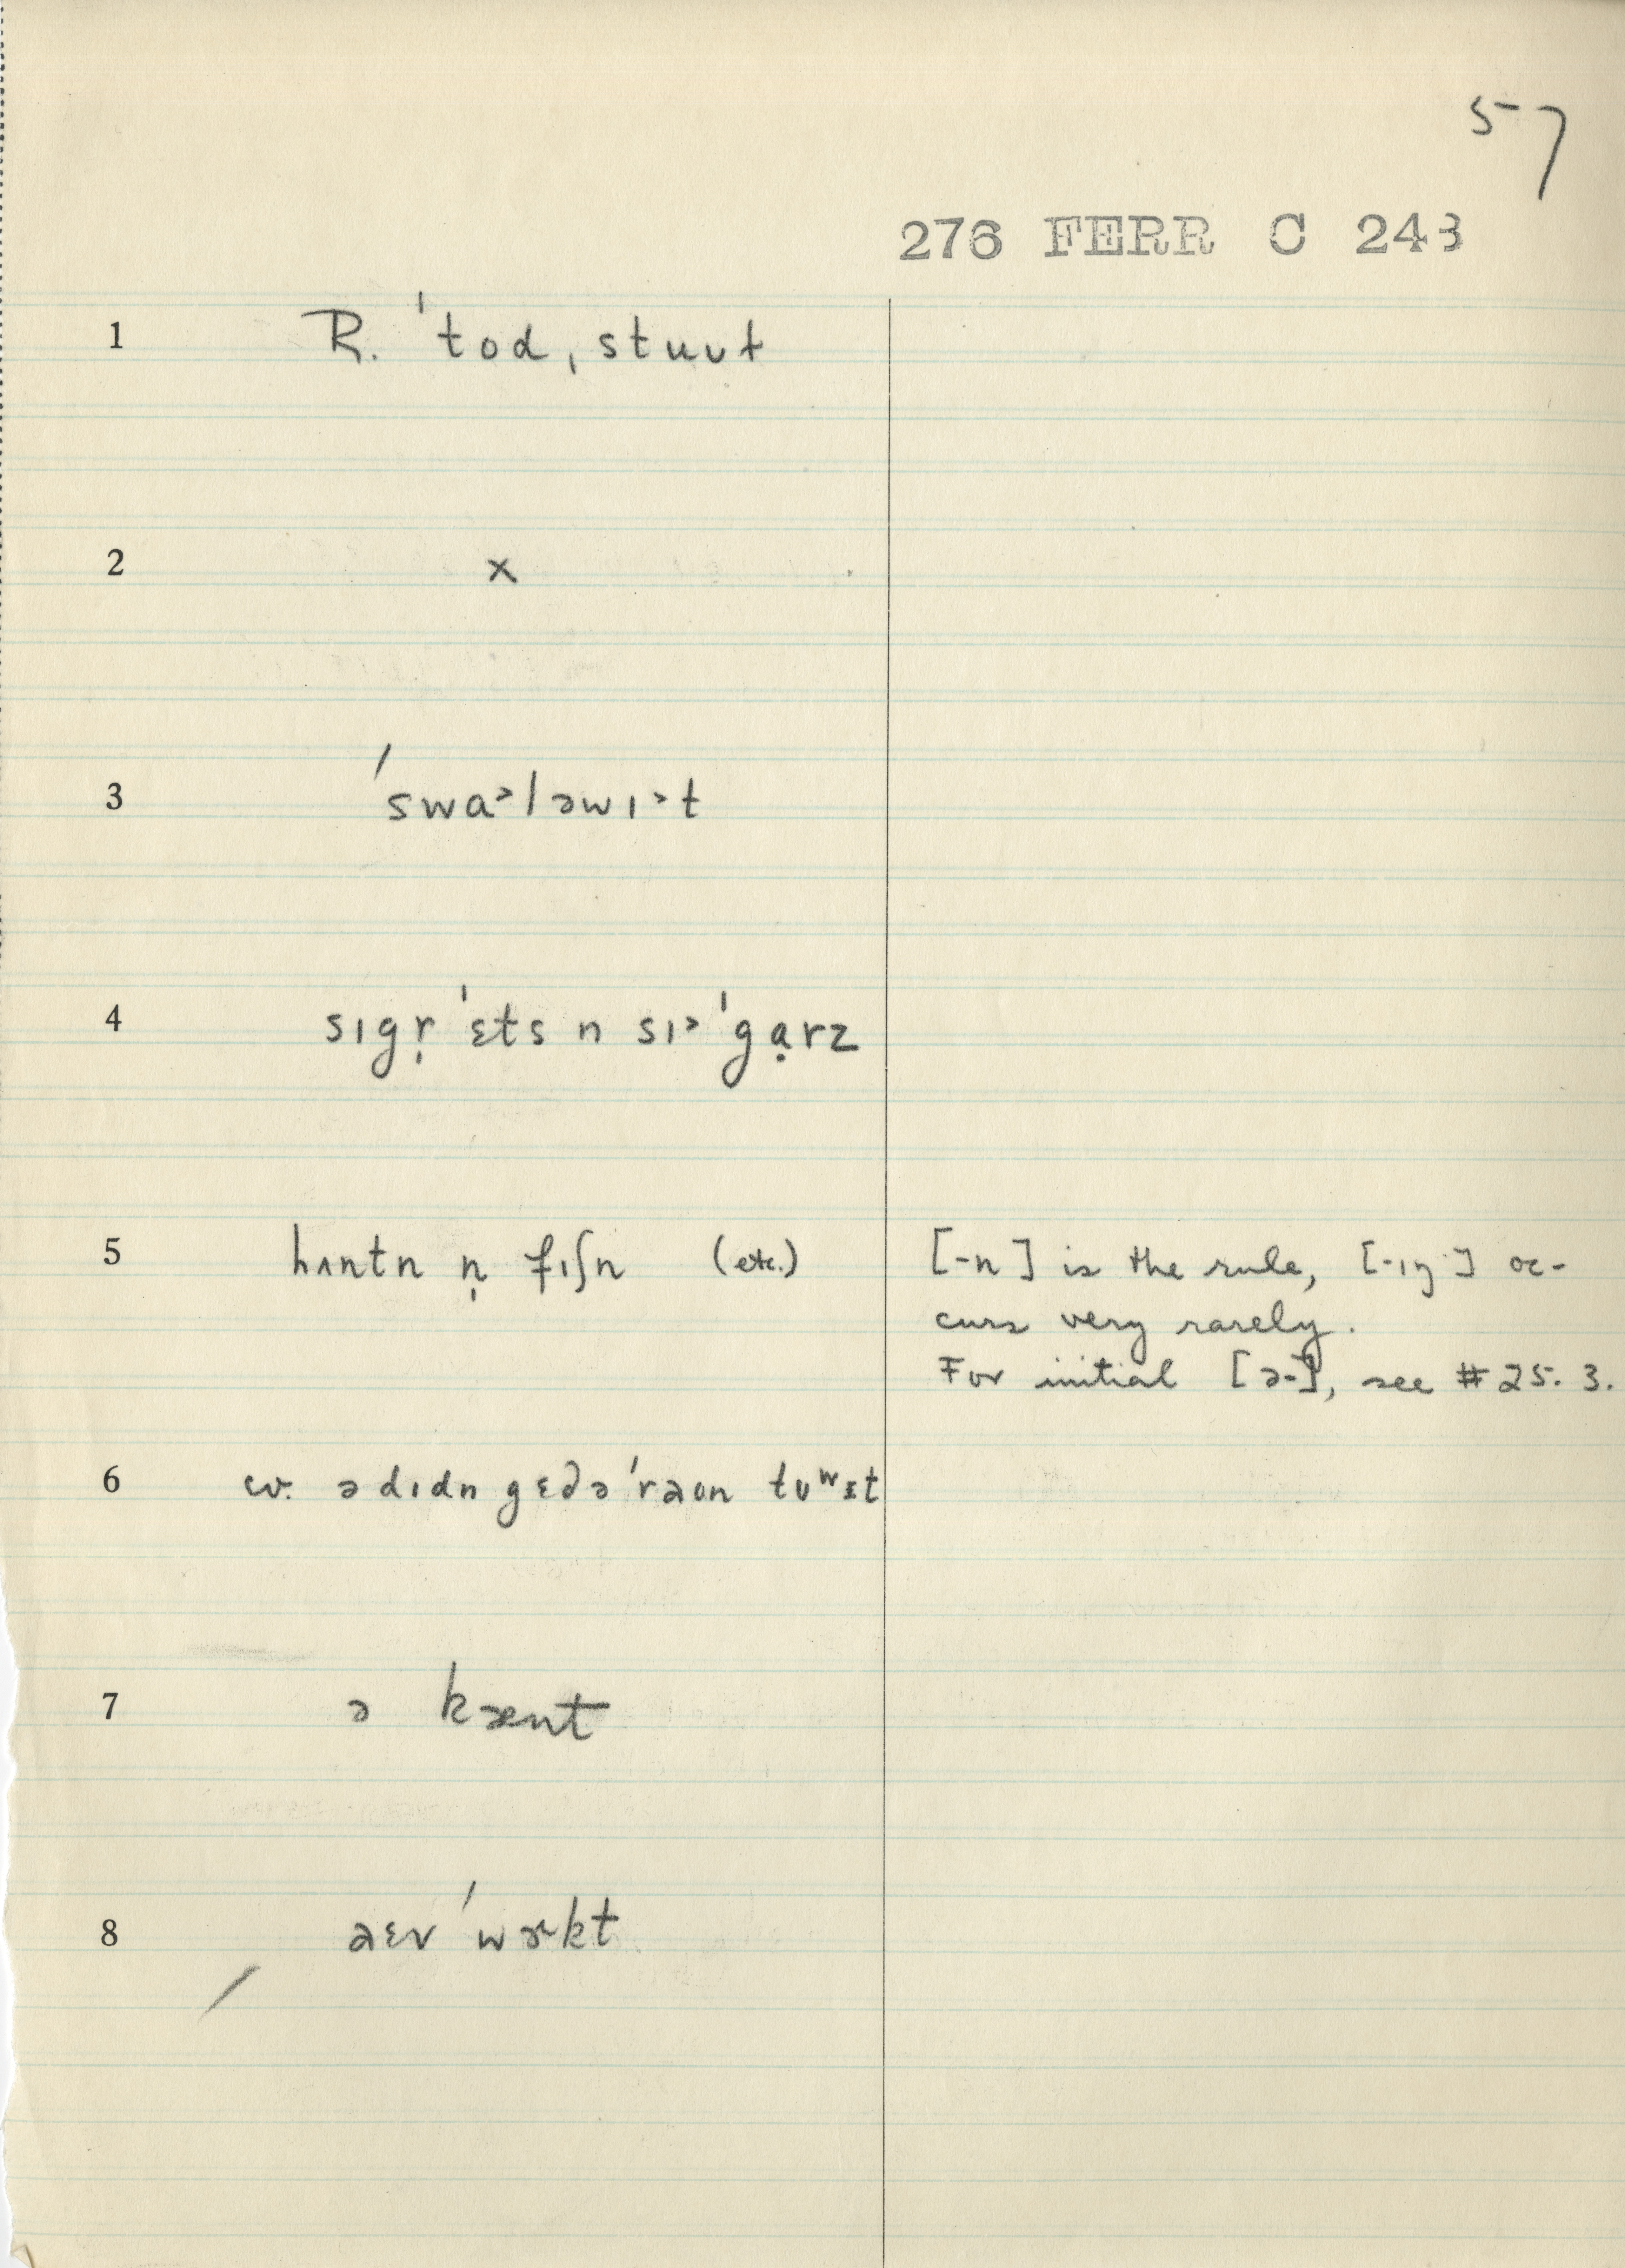 57
276 FERR C 243
1 R. ˈtod, stuʊt
2 x
3 ˈswa˃ləwɪ˃t
4 sɪgṛˈɛts n sɪ˃ˈgạrz
5 hʌntn n̩ fɪʃn (etc.) [-n] is the rule, [-ɪŋ] oc-
curs very rarely.
For initial [ə-], see #25.3.
6 cv. ə dɪdn gɛdəˈraʊn tʊʷɪt
7 ə kænt
8 aɛv ˈwɝkt